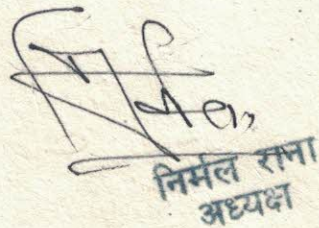 निर्मल राना
अध्यक्ष